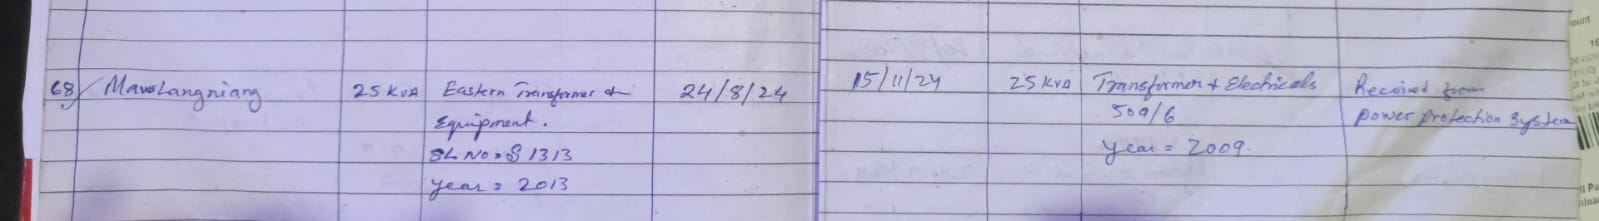 68/ Mawlangniang 25 KVA Eastern Transformer &
Equipment.
SL NO = S 1313
year = 2013
24/8/24
15/11/24 25 KVA Transformer + Electricals
509/6
year = 2009.
Received from
power protection system